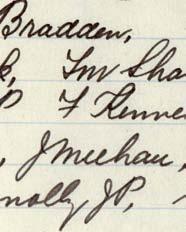 Bradden,
k, Tm Sha
P F Kenne
, J Meehan,
nolly, JP,